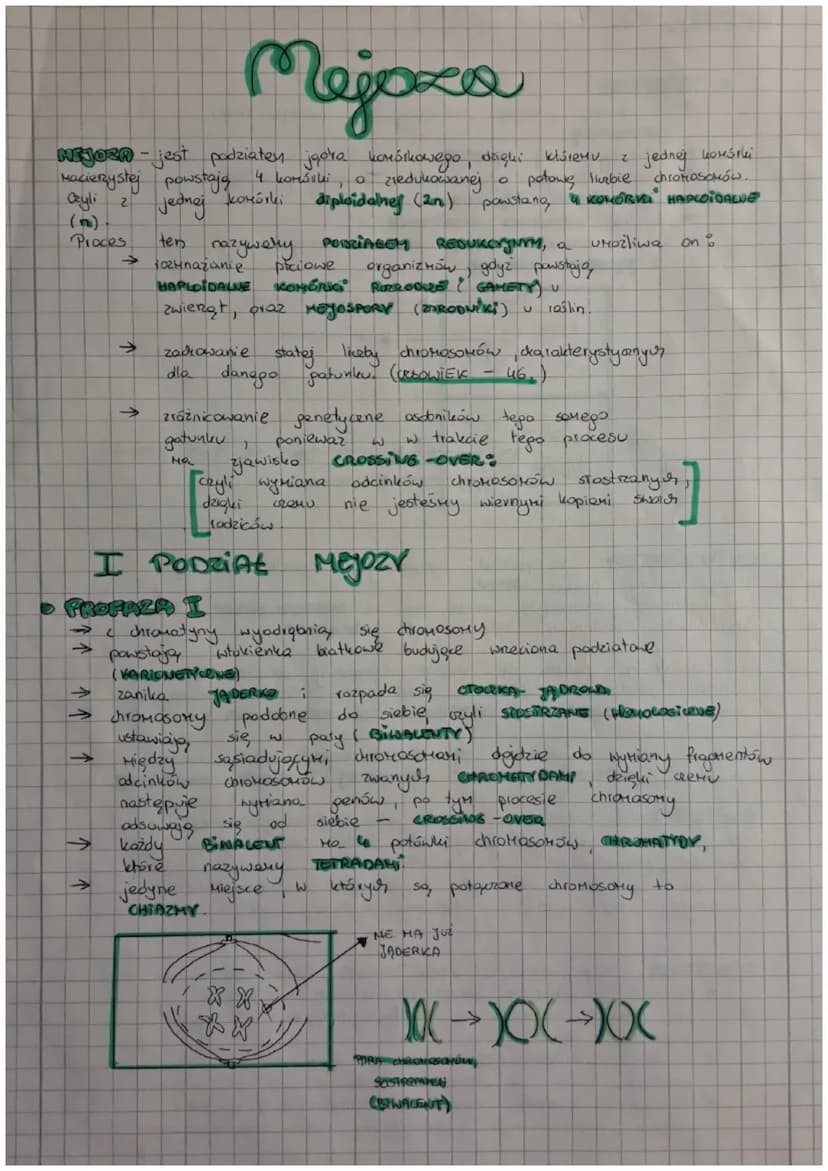 Mejoza
MEJOZA - jest podziałem jądra komórkowego, dzięki któremu z jednej komórki
macierzystej powstają 4 komórki, o zredukowanej o połowę liczbie chromosomów.
Czyli z jednej komórki diploidalnej (2n) powstaną 4 KOMÓRKI HAPLOIDALNE
(n).
Proces ten nazywamy PODZIAŁEM REDUKCYJNYM, a umożliwa on:
→ rozmnażanie płciowe organizmów, gdyż powstają
HAPLOIDALNE KOMÓRKI ROZRODCZE (GAMETY) u
zwierząt, oraz MEJOSPORY (ZARODNIKI) u roślin.
→ zachowanie stałej liczby chromosomów, charakterystycznych
dla danego gatunku. (CZŁOWIEK - 46.)
→ zróżnicowanie genetyczne osobników tego samego
gatunku, ponieważ w w trakcie tego procesu
ma zjawisko CROSSING-OVER:
[czyli wymiana odcinków chromosomów siostrzanych,
dzięki czemu nie jesteśmy wiernymi kopiami swoich
rodziców.]
I PODZIAŁ MEJOZY
• PROFAZA I
→ z chromatyny wyodrębnią się chromosomy
→ powstają włókienka białkowe budujące wrzeciona podziałowe
(KARIONETYCZNE)
→ zanika JĄDERKO i rozpada się OTOCZKA JĄDROWA
→ chromosomy podobne do siebie, czyli SIOSTRZANE (HOMOLOGICZNE)
ustawiają się w pary (BIWALENTY)
→ Między sąsiadującymi chromosomami dojdzie do wymiany fragmentów
odcinków chromosomów zwanych CHROMATYDAMI, dzięki czemu
następuje wymiana genów, po tym procesie chromosomy
odsuwają się od siebie - CROSSING-OVER
→ każdy BIWALENT ma 4 połówki chromosomów, CHROMATYDY,
które nazywamy TETRADAMI
→ jedyne miejsce, w których są połączone chromosomy to
CHIAZMY.
NIE MA JUŻ
JĄDERKA
PARA CHROMOSOMÓW
SIOSTRZANYCH
(BIWALENT)